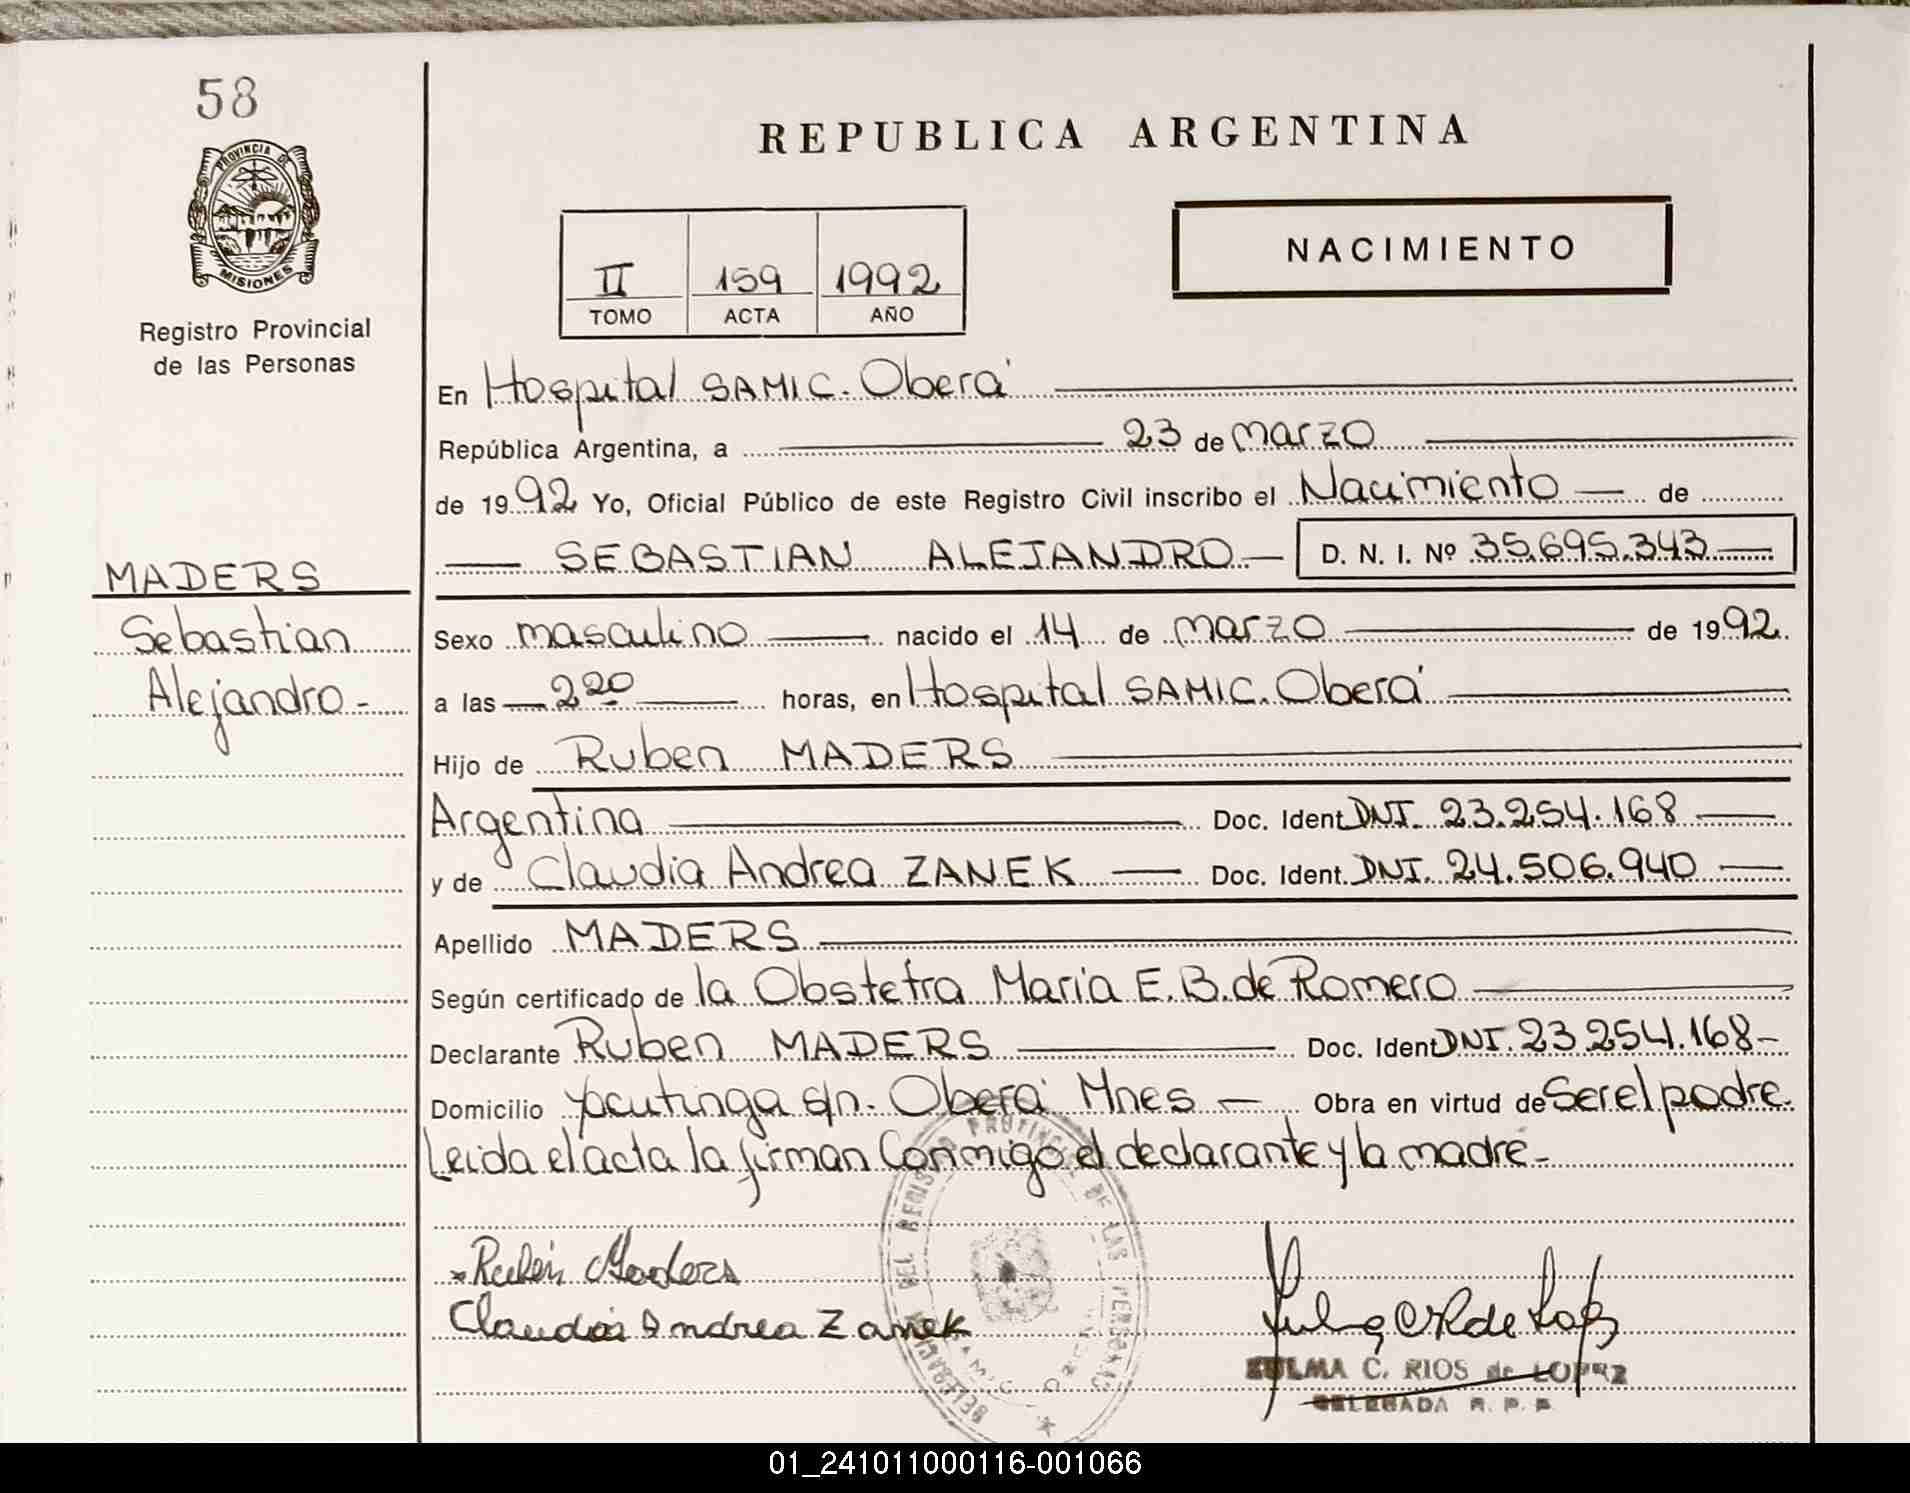 58
PROVINCIA DE
MISIONES
Registro Provincial
de las Personas
REPUBLICA ARGENTINA
NACIMIENTO
II 159 1992
TOMO ACTA AÑO
En Hospital SAMIC. Oberá
República Argentina, a 23 de marzo
de 1992 Yo, Oficial Público de este Registro Civil inscribo el Nacimiento — de
— SEBASTIAN ALEJANDRO — D. N. I. Nº 35.695.343 —
MADERS
Sebastian
Alejandro -
Sexo masculino — nacido el 14 de marzo — de 1992.
a las — 2 20 — horas, en Hospital SAMIC. Oberá
Hijo de Ruben MADERS
Argentina — Doc. Ident. DNI. 23.254.168 —
y de Claudia Andrea ZANEK — Doc. Ident. DNI. 24.506.940 —
Apellido MADERS
Según certificado de la Obstetra Maria E. B. de Romero
Declarante Ruben MADERS — Doc. Ident DNI. 23.254.168 -
Domicilio Yacutinga s/n. Oberá Mnes — Obra en virtud de Ser el padre.
Leida el acta la firman Conmigo el declarante y la madre -
Rubén Maders
Claudia Andrea Zanek
DEL REGISTRO PROVINCIAL DE LAS PERSONAS
ZULMA C. RIOS de LOPEZ
DELEGADA R. P. P.
01_241011000116-001066